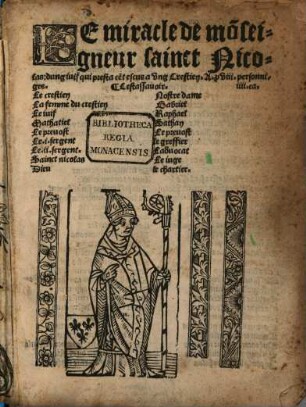 LE miracle de mõsei-
gneur sainct Nico-
las: dung iuif qui presta cēt escus a Vng Crestien. A. pviii. personna
ges. C Cest assauoir. iiii. ca.
Le crestien
La femme du crestien
Le iuif
Mathatiel
Le preuost
Le .i. sergent
Le .ii. sergent.
Sainct nicolas
Dieu
Nostre dame
Gabriel
Raphael
Sathan
Le preuost
Le greffier
Laduocat
Le iuge
Le chartier.
BIBLIOTHECA
REGIA
MONACENSIS.